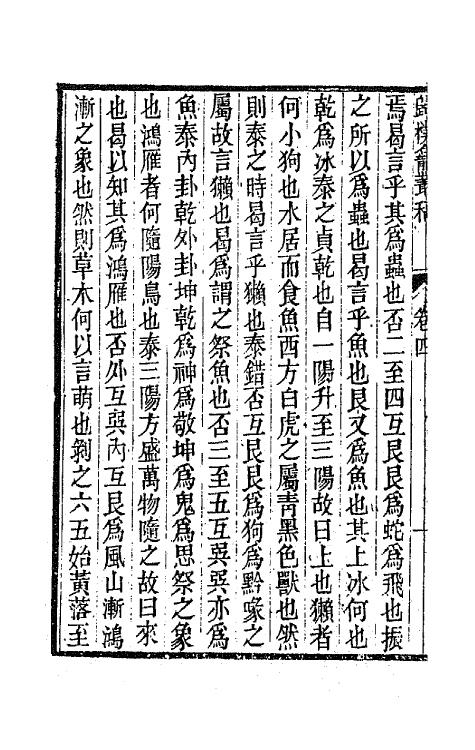 歸樸龕叢稿 卷四 一
焉曷言乎其爲蟲也否二至四互艮艮爲蛇爲飛也振
之所以爲蟲也曷言乎魚也艮又爲魚也其上冰何也
乾爲冰泰之貞乾也自一陽升至三陽故曰上也獺者
何小狗也水居而食魚西方白虎之屬靑黑色獸也然
則泰之時曷言乎獺也泰錯否互艮艮爲狗爲黔喙之
屬故言獺也曷爲謂之祭魚也否三至五互巽巽亦爲
魚泰內卦乾外卦坤乾爲神爲敬坤爲鬼爲思祭之象
也鴻雁者何隨陽鳥也泰三陽方盛萬物隨之故曰來
也曷以知其爲鴻雁也否外互巽內互艮爲風山漸鴻
漸之象也然則草木何以言萌也剝之六五始黃落至